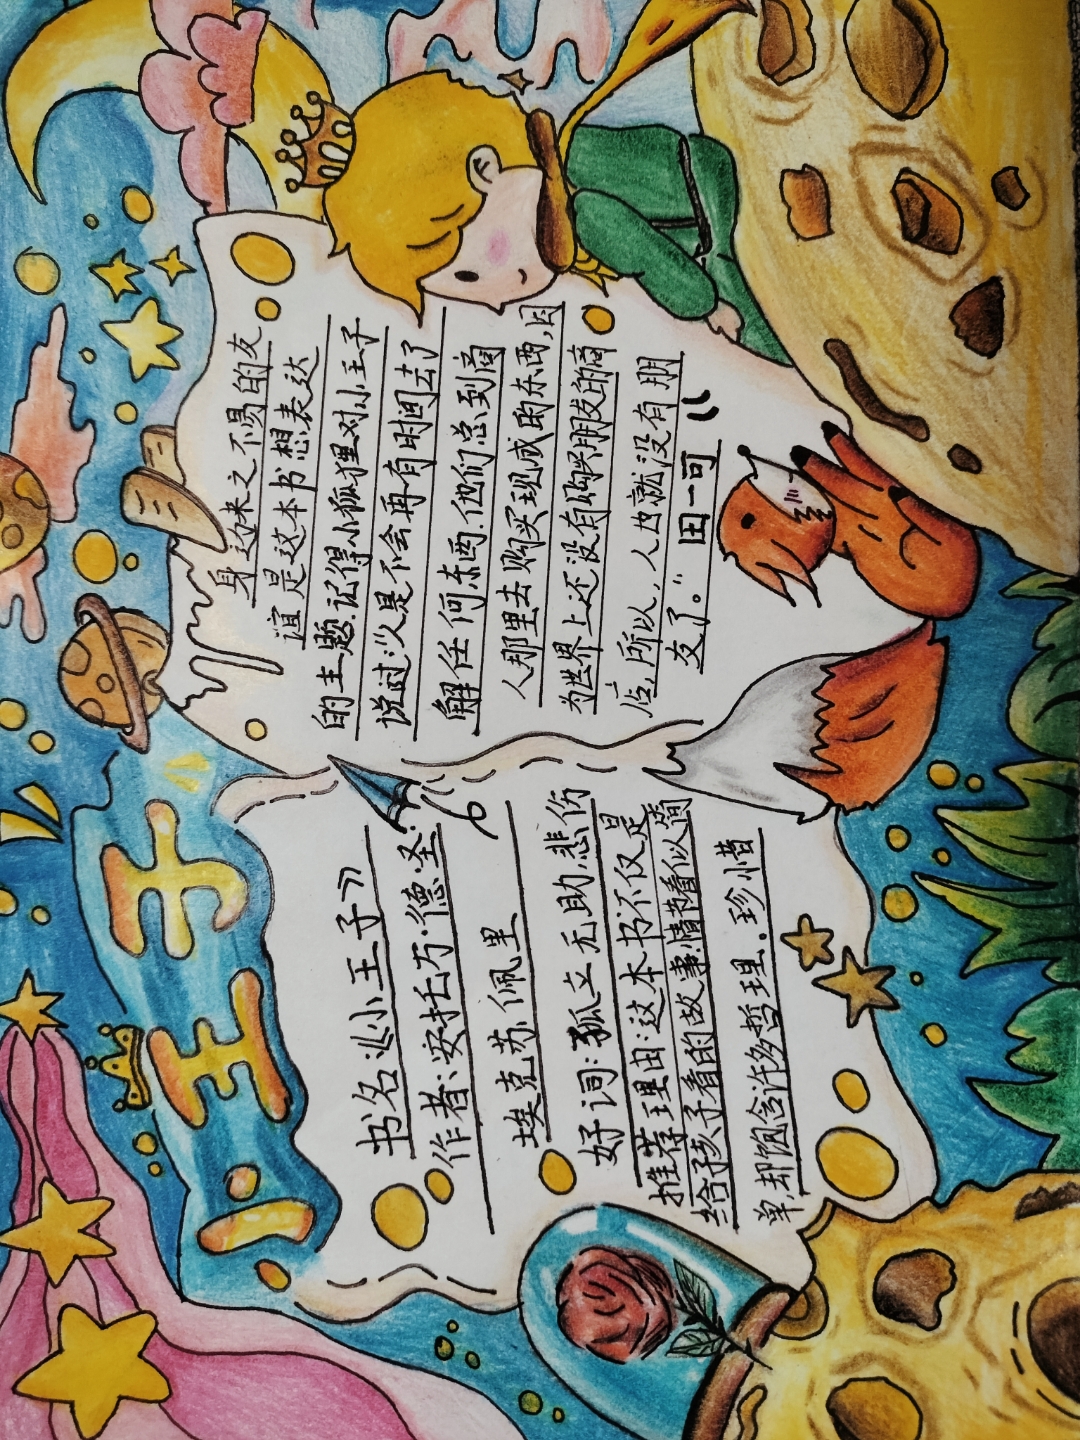 小王子
书名:《小王子》
作者:安托万·德·圣·
埃克苏佩里
好词:孤立无助.悲伤
推荐理由:这本书不仅是
给孩子看的故事.情节看似简
单,却饱含许多哲理.珍惜
身边来之不易的友
谊是这本书想表达
的主题.记得小狐狸对小王子
说过:"人是不会再有时间去了
解任何东西.他们总到商
人那里去购买现成的东西,因
为世界上还没有购买朋友的商
店,所以,人也就没有朋
友了。"
田一可